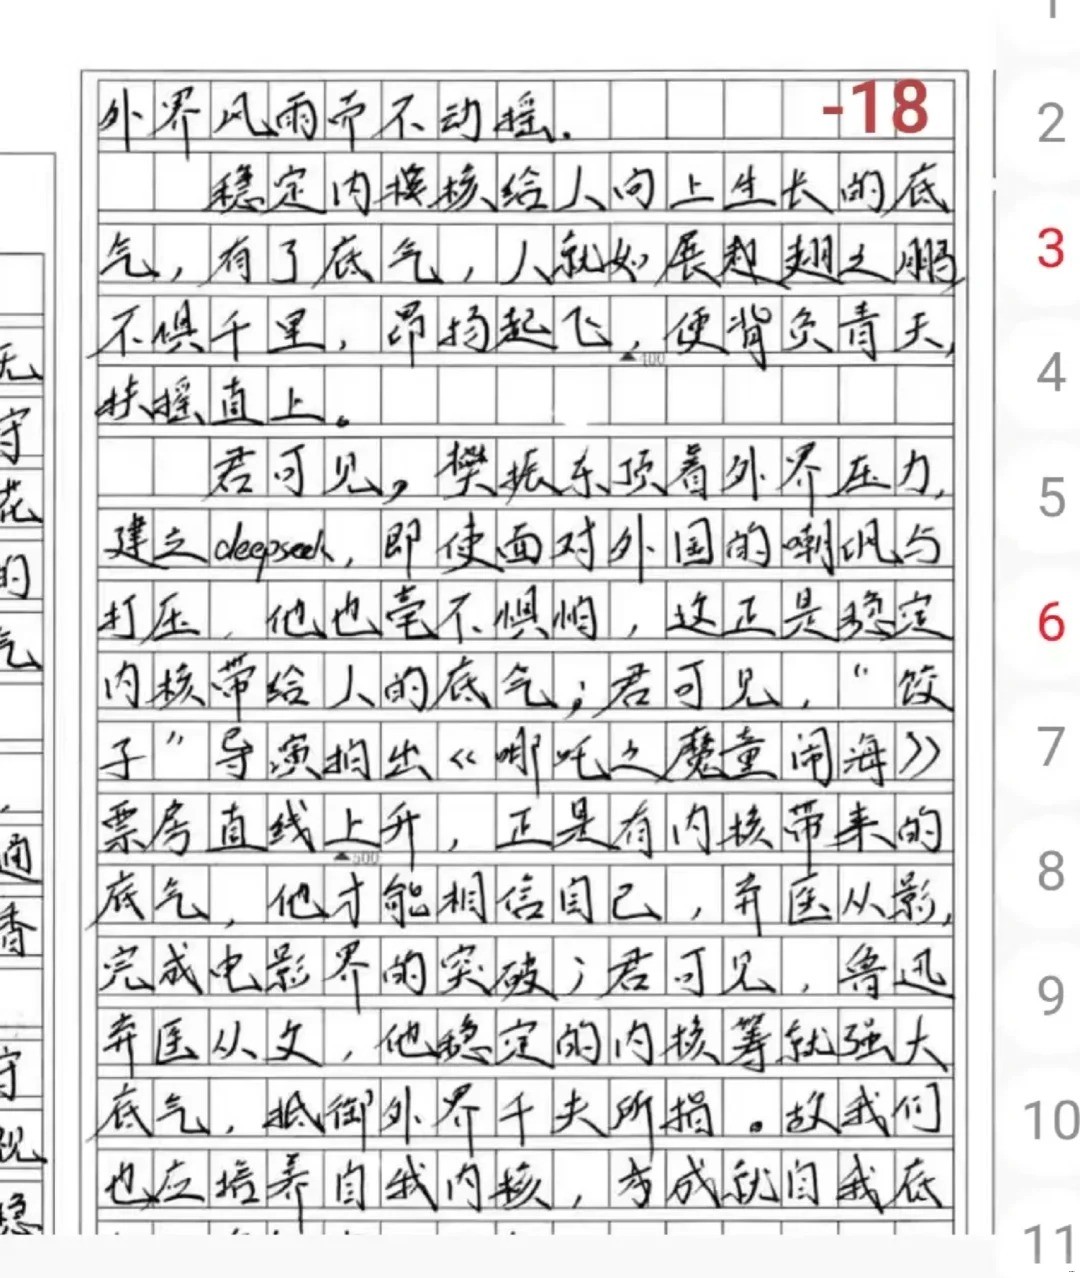 外界风雨而不动摇.
-18
稳定内核给人向上生长的底
气，有了底气，人就如展翅之鹏
不惧千里，昂扬起飞，便背负青天，
▲400
扶摇直上。
君可见，樊振东顶着外界压力，
建立deepseek，即使面对外国的嘲讽与
打压，他也毫不惧怕，这正是稳定
内核带给人的底气；君可见，“饺
子”导演拍出《哪吒之魔童闹海》
票房直线上升，正是有内核带来的
▲500
底气，他才能相信自己，弃医从影，
完成电影界的突破；君可见，鲁迅
弃医从文，他稳定的内核筹就强大
底气，抵御外界千夫所损。故我们
也应培养自我内核，方成就自我底
无
守
花
的
气
通
香
守
视
稳
1
2
3
4
5
6
7
8
9
10
11